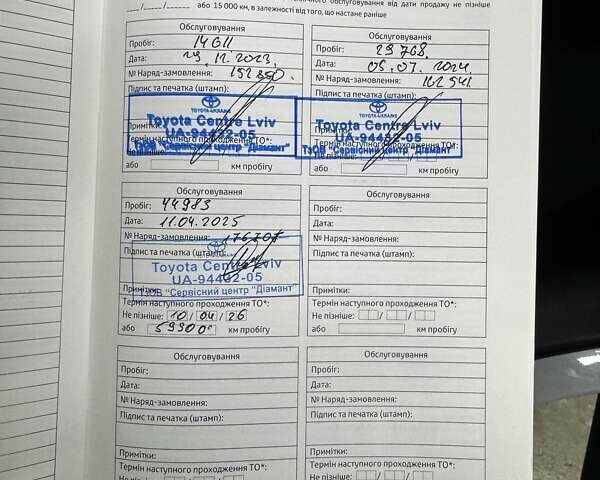 обслуговування від дати продажу не пізніше
___/____/______ або 15 000 км, в залежності від того, що настане раніше
Обслуговування
Пробіг: 14 611
Дата: 29. 11. 2023.
№ Наряд-замовлення: 152850.
Підпис та печатка (штамп):
TOYOTA-UKRAINE
Toyota Centre Lviv
UA-94432-05
ТзОВ "Сервісний центр "Діамант"
Примітки:
Термін наступного проходження ТО*:
Не пізніше:
або км пробігу
Обслуговування
Пробіг: 29 768.
Дата: 05. 07. 2024.
№ Наряд-замовлення: 162 541.
Підпис та печатка (штамп):
TOYOTA-UKRAINE
Toyota Centre Lviv
UA-94432-05
ТзОВ "Сервісний центр "Діамант"
Примітки:
Термін наступного проходження ТО*:
Не пізніше:
або км пробігу
Обслуговування
Пробіг: 44983
Дата: 11.04.2025
№ Наряд-замовлення:
Підпис та печатка (штамп):
Toyota Centre Lviv
UA-94432-05
ТзОВ "Сервісний центр "Діамант"
Примітки:
Термін наступного проходження ТО*:
Не пізніше: 10 / 04 / 26
або 59900 км пробігу
Обслуговування
Пробіг:
Дата:
№ Наряд-замовлення:
Підпис та печатка (штамп):
Примітки:
Термін наступного проходження ТО*:
Не пізніше:
або км пробігу
Обслуговування
Пробіг:
Дата:
№ Наряд-замовлення:
Підпис та печатка (штамп):
Примітки:
Термін наступного проходження ТО*:
Не пізніше:
Обслуговування
Пробіг:
Дата:
№ Наряд-замовлення:
Підпис та печатка (штамп):
Примітки:
Термін наступного проходження ТО*:
Не пізніше: